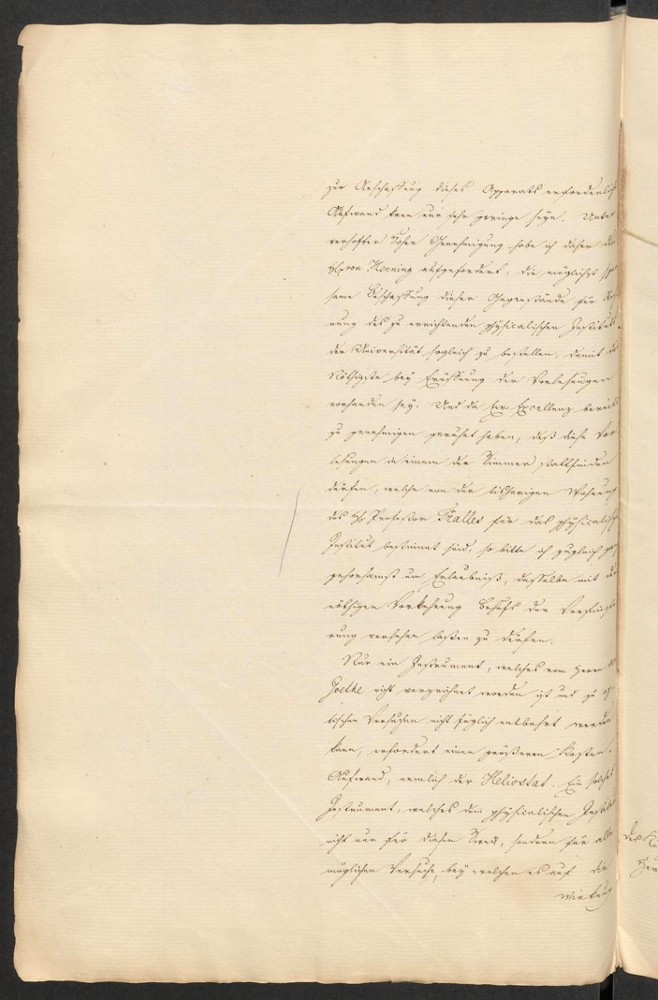 zur Anschaffung dieses Apparats erforderliche
Aufwand kann nur sehr geringe seyn. Unter
verhoffter Hoher Genehmigung habe ich daher den
H. von Henning aufgefordert, die möglichst spar
same Beschaffung dieser Gegenstände für Rech
nung des zu errichtenden physicalischen Instituts
der Universität sogleich zu bestellen, damit das
Nöthigste bey Eröffnung der Vorlesungen
vorhanden sey. Und da Ew. Excellenz bereits
zu genehmigen geruhet haben, daß diese Vor
lesungen in einem der Zimmer stattfinden
dürfen, welche von der bisherigen Wohnung
des H. Professor Tralles für das physicalische
Institut bestimmt sind, so bitte ich zugleich ganz
gehorsamst um Erlaubniß, dasselbe mit der
nöthigen Vorkehrung Behufs der Verfinste
rung versehen lassen zu dürfen.
Nur ein Instrument, welches vom Herrn von
Goethe nicht verzeichnet worden ist und zu op
tischen Versuchen nicht füglich entbehrt werden
kann, erfordert einen größeren Kosten-
Aufwand, nemlich der Heliostat. Ein solches
Instrument, welches dem physicalischen Institut
nicht nur für diesen Zweck, sondern für alle
möglichen Versuche, bey welchen es auf die
Wirkung